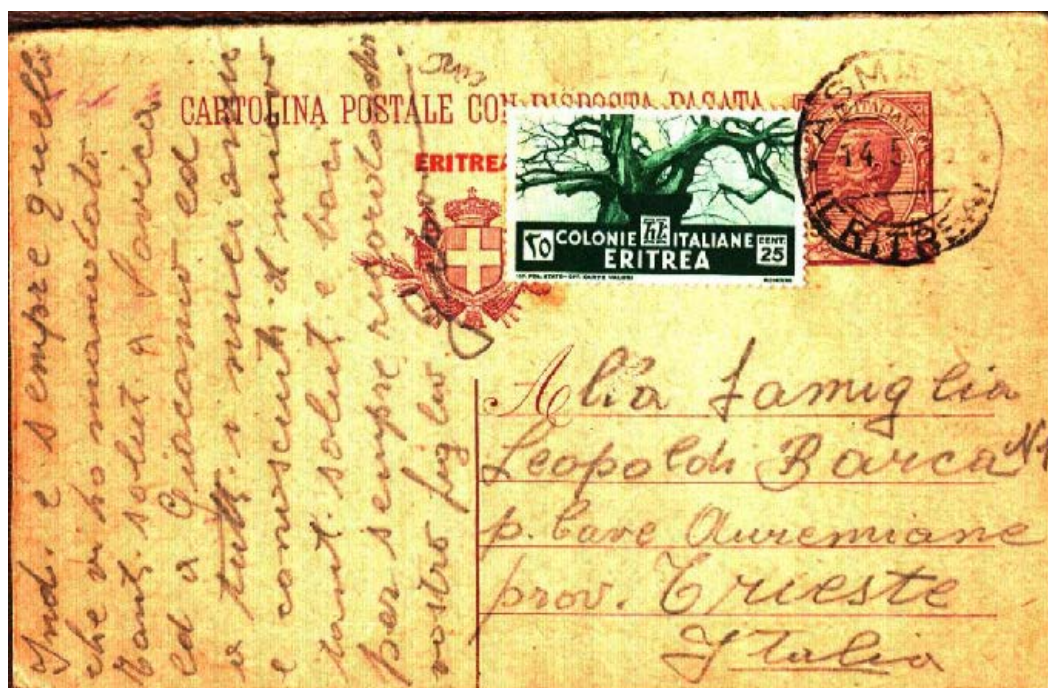 CARTOLINA POSTALE CON RISPOSTA PAGATA
ERITREA
٢٥ COLONIE ITALIANE CENT. 25
ERITREA
IST. POL. STATO - OFF. CARTE VALORI
ASMARA
14.5
(ERITREA)
Alla Famiglia
Leopoldi Barca N
p. Cave Auremiane
prov. Trieste
Italia
Ind. è sempre quello
che vi ho mandato.
tant. salut. a
ed a Giacomo ed
a tutti i miei amici
e conosciuti di nuovo
tant. salut. e baci
per sempre ricordo dal
vostro figlio